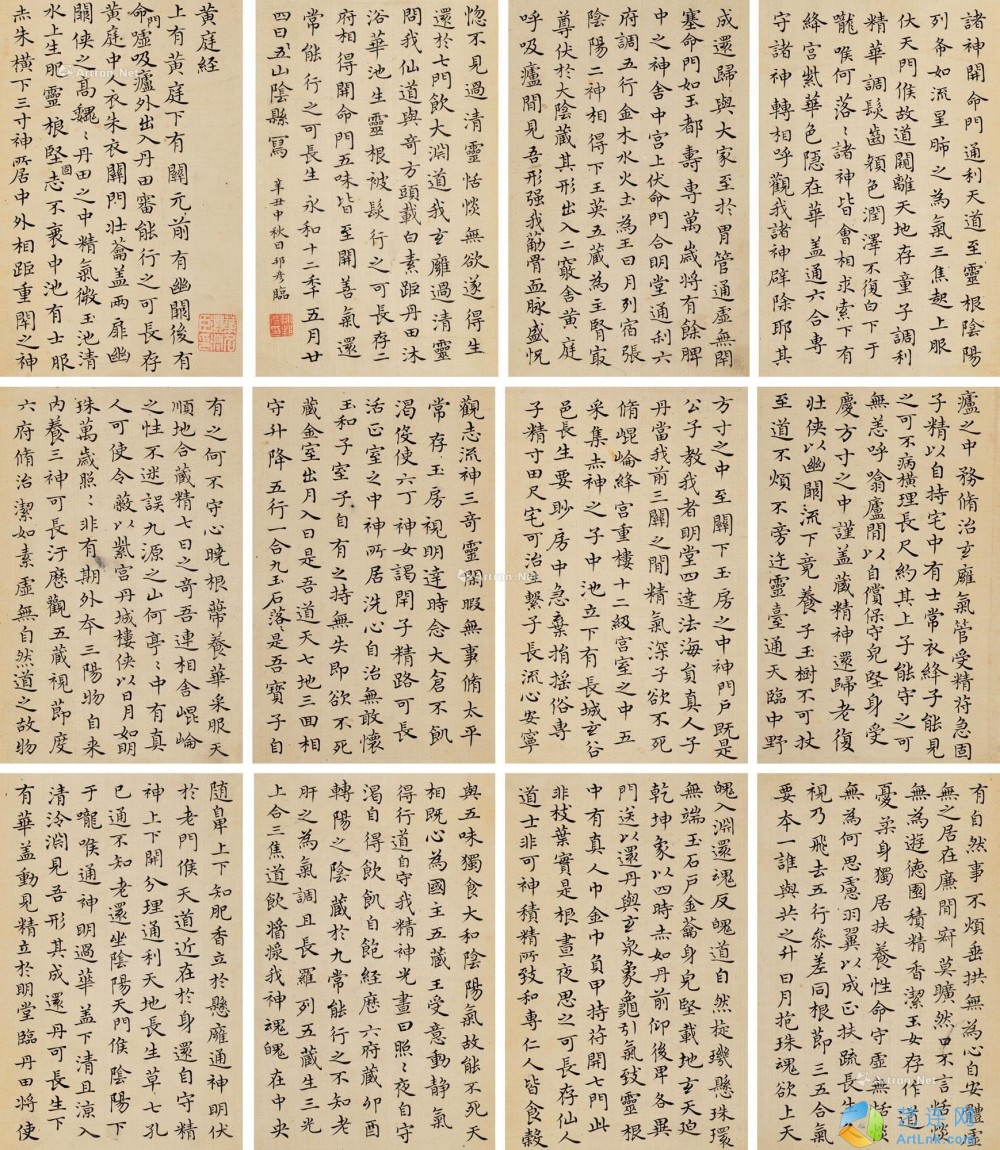 黃庭經
上有黃庭下有關元前有幽闕後有
命門噓吸廬外出入丹田審能行之可長存
黃庭中人衣朱衣關門壯蘥盖兩扉幽
闕俠之髙巍〻丹田之中精氣微玉池清
水上生肥靈根堅固志不衰中池有士服
赤朱橫下三寸神所居中外相距重閉之神
廬之中務脩治玄廱氣管受精符急固
子精以自持宅中有士常衣絳子能見
之可不病橫理長尺約其上子能守之可
無恙呼噏廬間以自償保守皃堅身受
慶方寸之中謹盖藏精神還歸老復
壯俠以幽闕流下竟養子玉樹不可杖
至道不煩不旁迕靈臺通天臨中野
方寸之中至關下玉房之中神門戶既是
公子教我者明堂四達法海負真人子
丹當我前三關之間精氣深子欲不死
脩崐崘絳宮重樓十二級宮室之中五
采集赤神之子中池立下有長城玄谷
邑長生要眇房中急棄捐搖俗專
子精寸田尺宅可治生繫子長流心安寧
觀志流神三奇靈閑暇無事脩太平
常存玉房視明達時念大倉不飢
渴伇使六丁神女謁閉子精路可長
活正室之中神所居洗心自治無敢懷
玉和子室子自有之持無失即欲不死
藏金室出月入日是吾道天七地三囬相
守升降五行一合九玉石落是吾寶子自
有之何不守心曉根蔕養華采服天
順地合藏精七日之奇吾連相舍崐崘
之性不迷誤九源之山何亭〻中有真
人可使令蔽以紫宮丹城樓俠以日月如明
珠萬歲照〻非有期外夲三陽物自来
內養三神可長汙歷觀五藏視節度
六府脩治潔如素虛無自然道之故物
有自然事不煩垂拱無為心自安體虛
無之居在廉間寂莫曠然口不言恬惔
無為遊德園積精香潔玉女存作道
憂柔身獨居扶養性命守虛無恬惔
無為何思慮羽翼以成正扶疏長生
視乃飛去五行參差同根節三五合氣
要夲一誰與共之升日月抱珠魂欲上天
魄入淵還魂反魄道自然㨔璣懸珠環
無端玉石戶金蘥身皃堅載地玄天迫
乾坤象以四時赤如丹前仰後卑各異
門送以還丹與玄泉象龜引氣致靈根
中有真人巾金巾負甲持符開七門此
非枝葉實是根晝夜思之可長存仙人
道士非可神積精所致和專仁人皆食穀
與五味獨食大和陰陽氣故能不死天
相既心為國主五藏王受意動静氣
得行道自守我精神光晝日照〻夜自守
渴自得飲飢自飽経歷六府藏卯酉
轉陽之陰藏於九常能行之不知老
肝之為氣調且長羅列五藏生三光
上合三焦道飲醬漿我神魂魄在中央
隨鼻上下知肥香立於懸廱通神明伏
於老門候天道近在於身還自守精
神上下開分理通利天地長生草七孔
已通不知老還坐陰陽天門候陰陽下
于嚨喉通神明過華盖下清且涼入
清泠淵見吾形其成還丹可長生下
有華盖動見精立於明堂臨丹田將使
諸神開命門通利天道至靈根陰陽
列布如流星肺之為氣三焦起上服
伏天門候故道闚離天地存童子調利
精華調髮齒顏色潤澤不復白下于
嚨喉何落〻諸神皆會相求索下有
絳宮紫華色隱在華盖通六合專
守諸神轉相呼觀我諸神辟除耶其
成還歸與大家至於胃管通虛無閉
塞命門如玉都壽專萬歲將有餘脾
中之神舍中宮上伏命門合明堂通利六
府調五行金木水火土為王日月列宿張
陰陽二神相得下玉英五藏為主腎㝡
尊伏於大陰藏其形出入二竅舍黃庭
呼吸廬間見吾形强我筋骨血脉盛怳
惚不見過清靈恬惔無欲遂得生
還於七門飲大淵道我玄廱過清靈
問我仙道與奇方頭載白素距丹田沐
浴華池生靈根被髮行之可長存二
府相得開命門五味皆至開善氣還
常能行之可長生 永和十二秊五月廿
四日五山陰縣寫 辛丑中秋日邱彥臨
Artron.Net
艺连网
ArtLnk.com